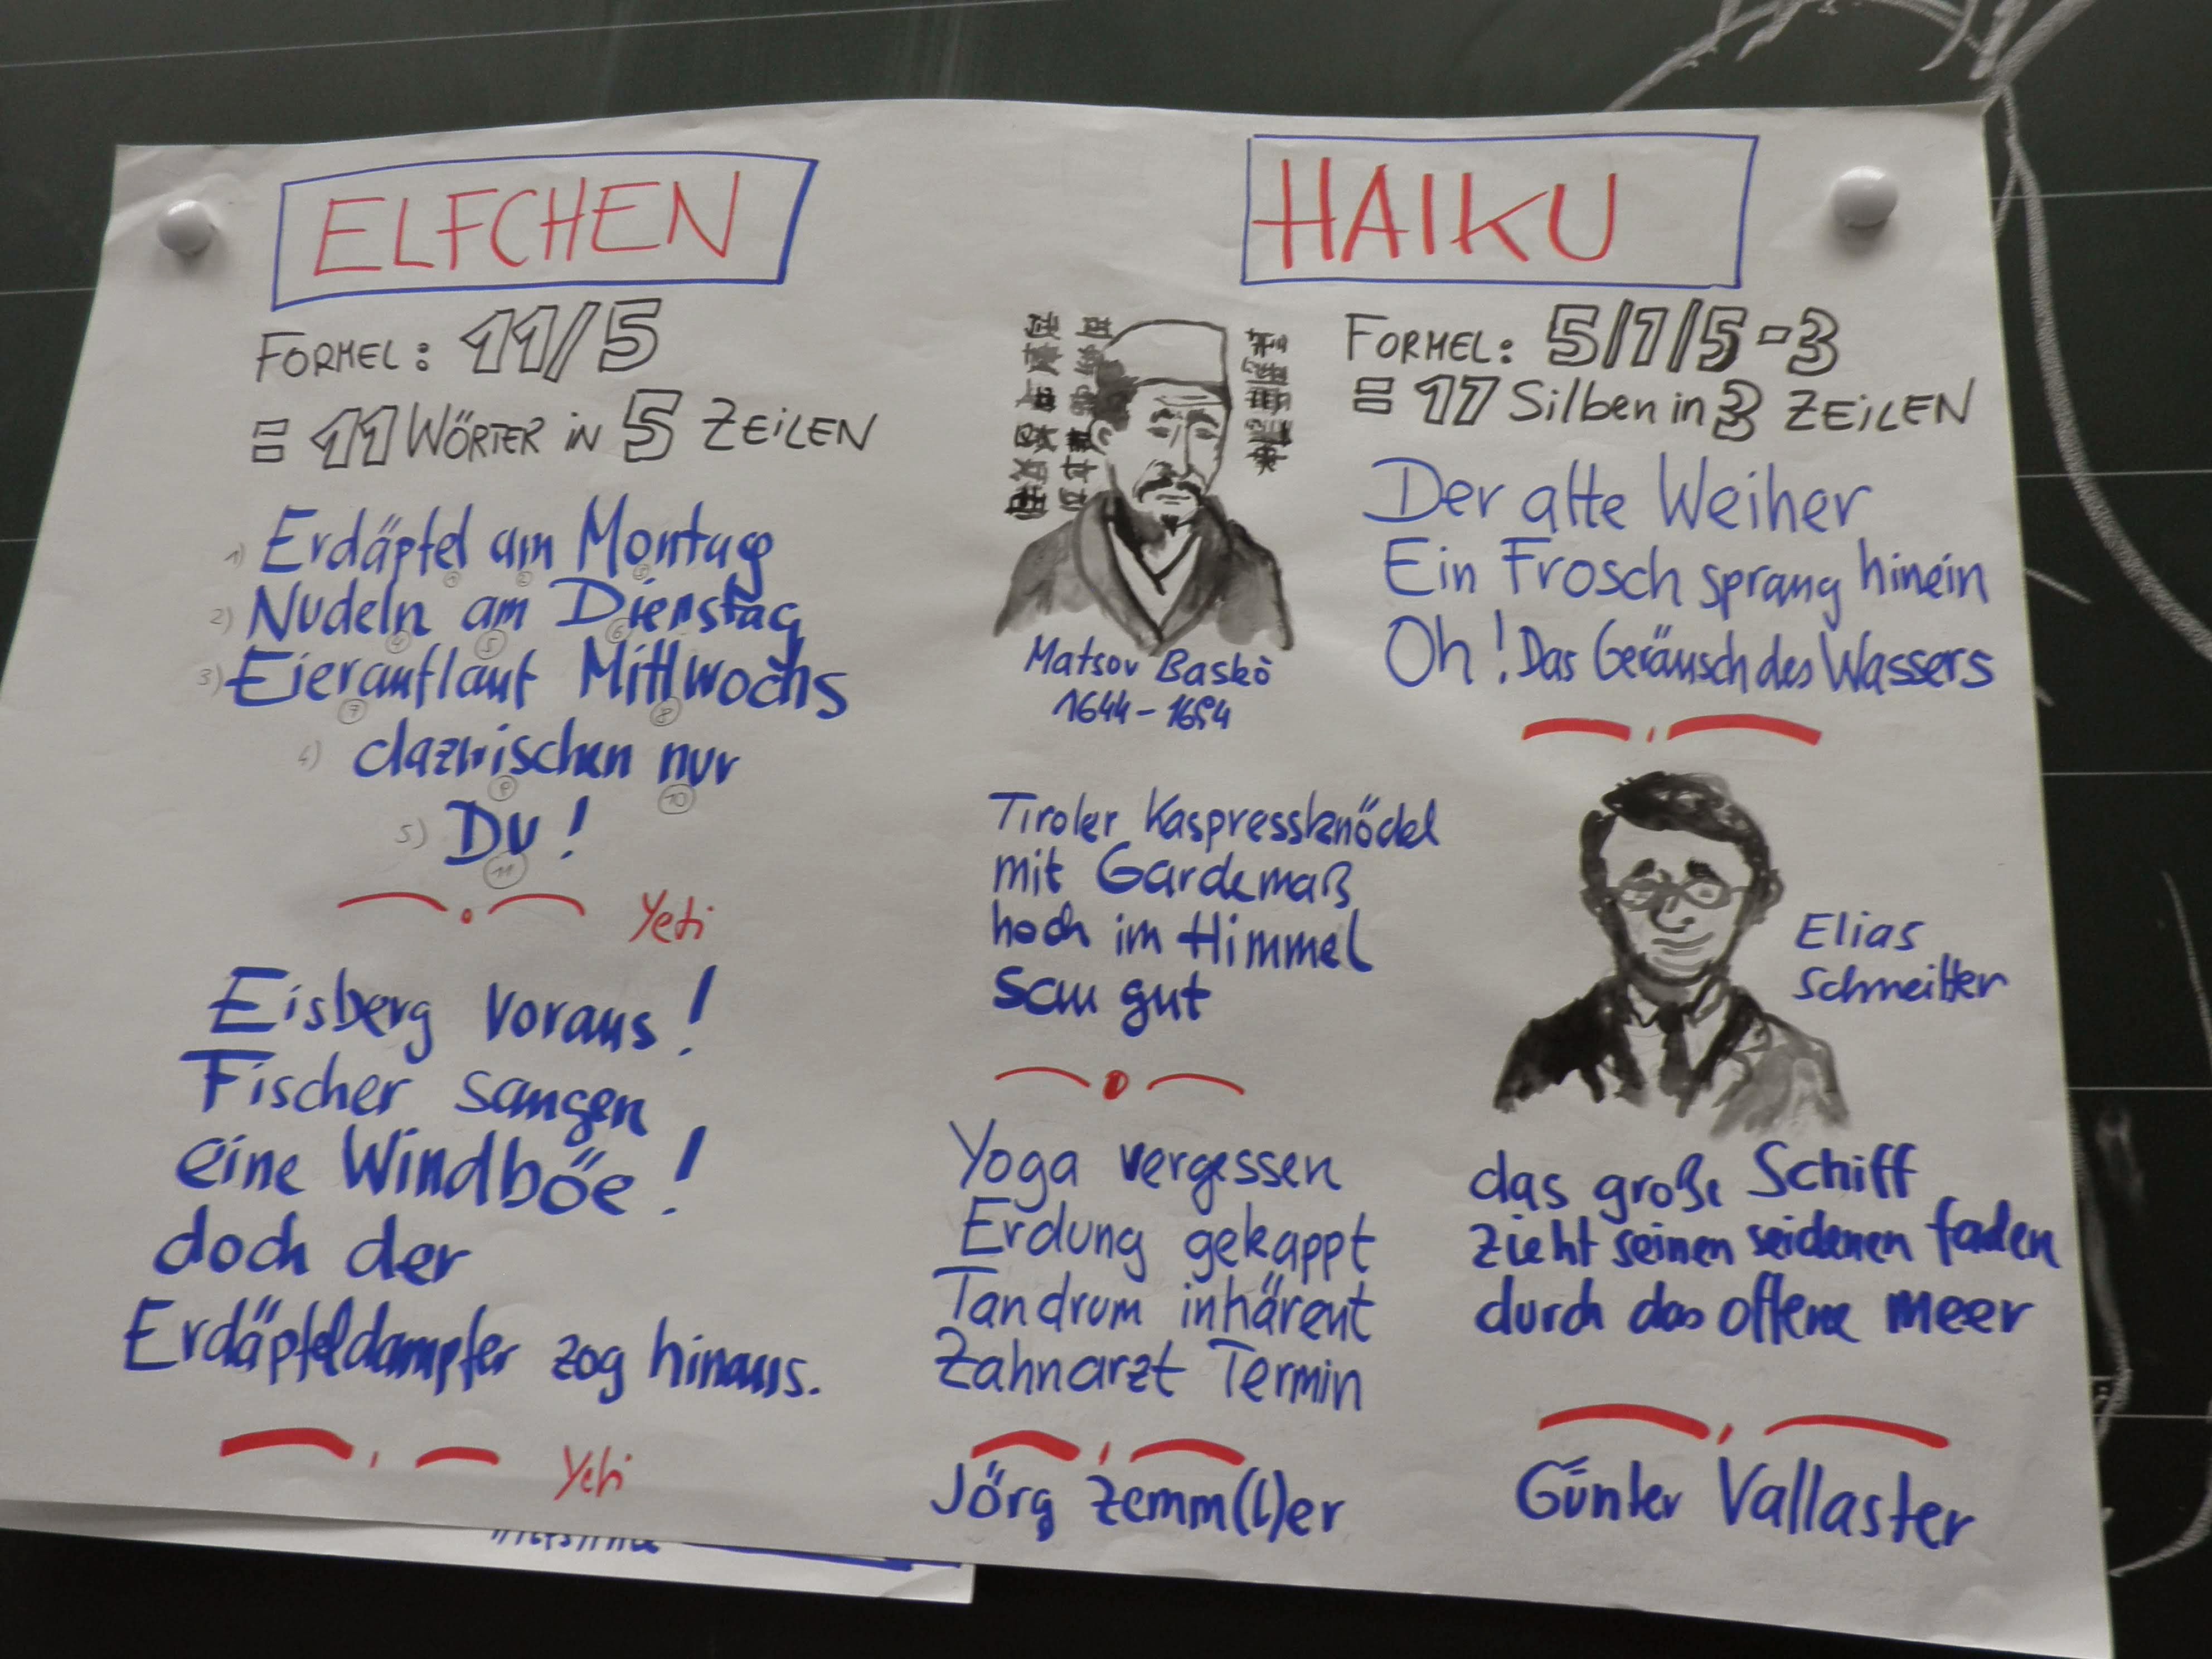 ELFCHEN
FORMEL: 11/5
= 11 WÖRTER in 5 ZEILEN
1) Erdäpfel am Montag
1 2 3
2) Nudeln am Dienstag
4 5 6
3) Eierauflauf Mittwochs
7 8
4) dazwischen nur
9 10
5) Du!
11
Yeti
Eisberg voraus!
Fischer sangen
eine Windböe!
doch der
Erdäpfeldampfer zog hinaus.
Yeti
HAIKU
FORMEL: 5/7/5-3
= 17 Silben in 3 ZEILEN
Matsou Baskò
1644-1694
Der alte Weiher
Ein Frosch sprang hinein
Oh! Das Geräusch des Wassers
Tiroler Kaspressknödel
mit Gardemaß
hoch im Himmel
sau gut
Elias
Schneitter
Yoga vergessen
Erdung gekappt
Tandrum inhärent
Zahnarzt Termin
Jörg Zemm(l)er
das große Schiff
zieht seinen seidenen faden
durch das offene meer
Günter Vallaster